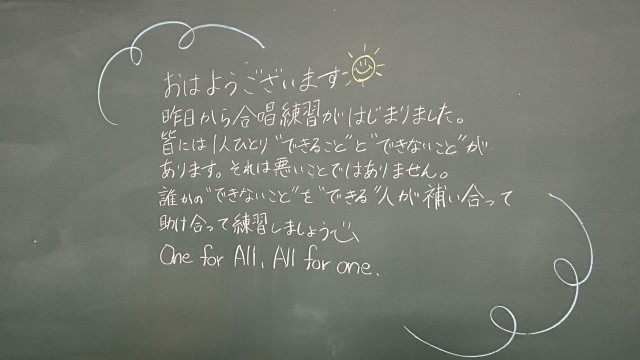 おはようございます
昨日から合唱練習がはじまりました。
皆には1人ひとり"できること"と"できないこと"が
あります。それは悪いことではありません。
誰かの"できないこと"を"できる"人が補い合って
助け合って練習しましょう
One for All, All for one.